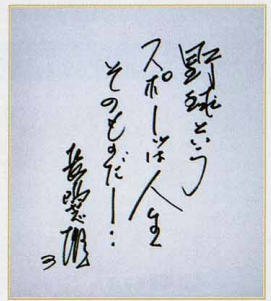 野球という
スポーツは人生
そのものだー‥
長嶋茂雄
3